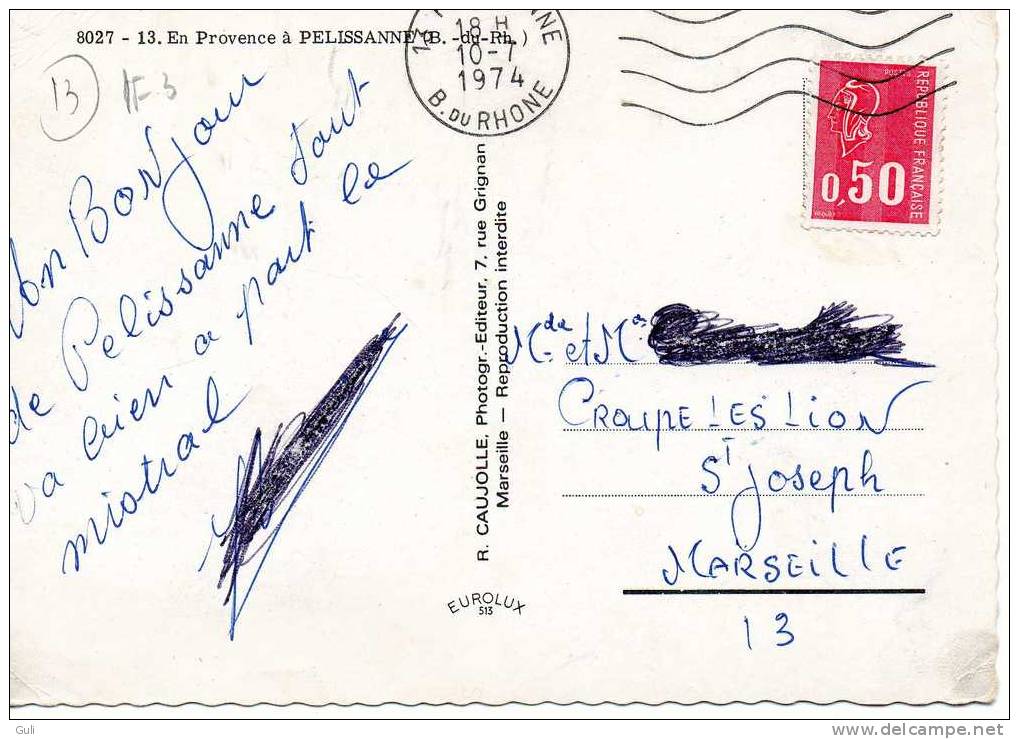 8027 - 13. En Provence à PELISSANNE (B.-du-Rh.)
18 H
10-7
1974
B. DU RHONE
POSTES
REPUBLIQUE FRANÇAISE
0,50
13
1F-3
Bonjour
de Pelissanne tout
va bien a part le
mistral
R. CAUJOLLE, Photogr.-Editeur, 7. rue Grignan
Marseille — Reproduction interdite
EUROLUX
513
et Mr
GROUPE LES LION
ST Joseph
MARSEILLE
13
Guli
www.delcampe.net